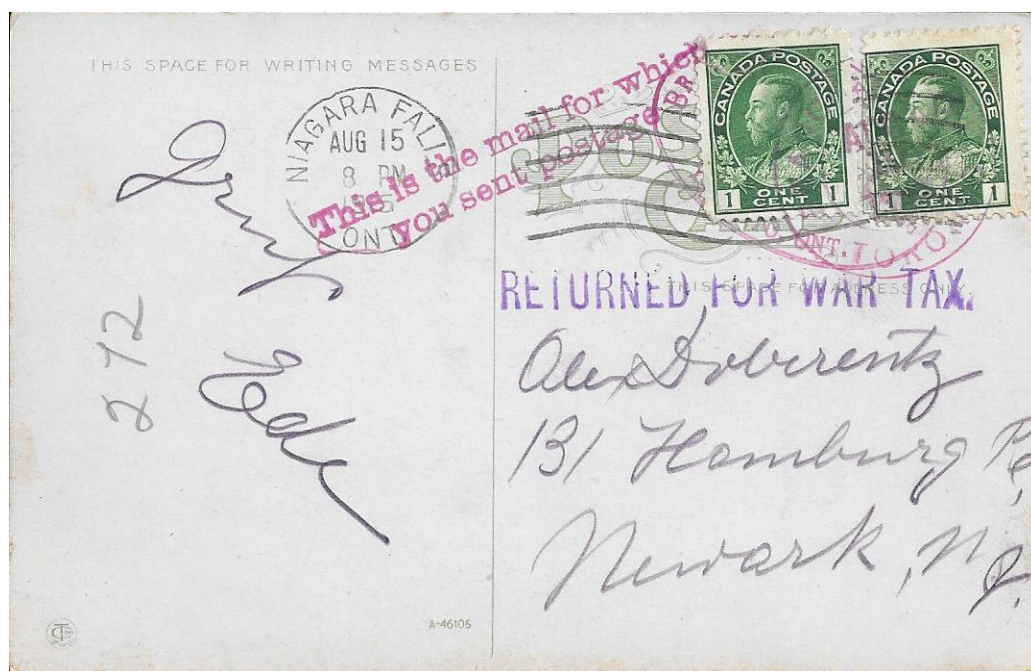 THIS SPACE FOR WRITING MESSAGES
NIAGARA FALLS
AUG 15
8 PM
ONT
This is the mail for which
you sent postage
CANADA POSTAGE
1 ONE CENT 1
CANADA POSTAGE
ONE CENT 1
ONT. TORON
POST
THIS SPACE FOR ADDRESS ONLY.
RETURNED FOR WAR TAX.
Alex Doberentz
131 Hamburg Pl
Newark, N J.
Ede
272
A-46105